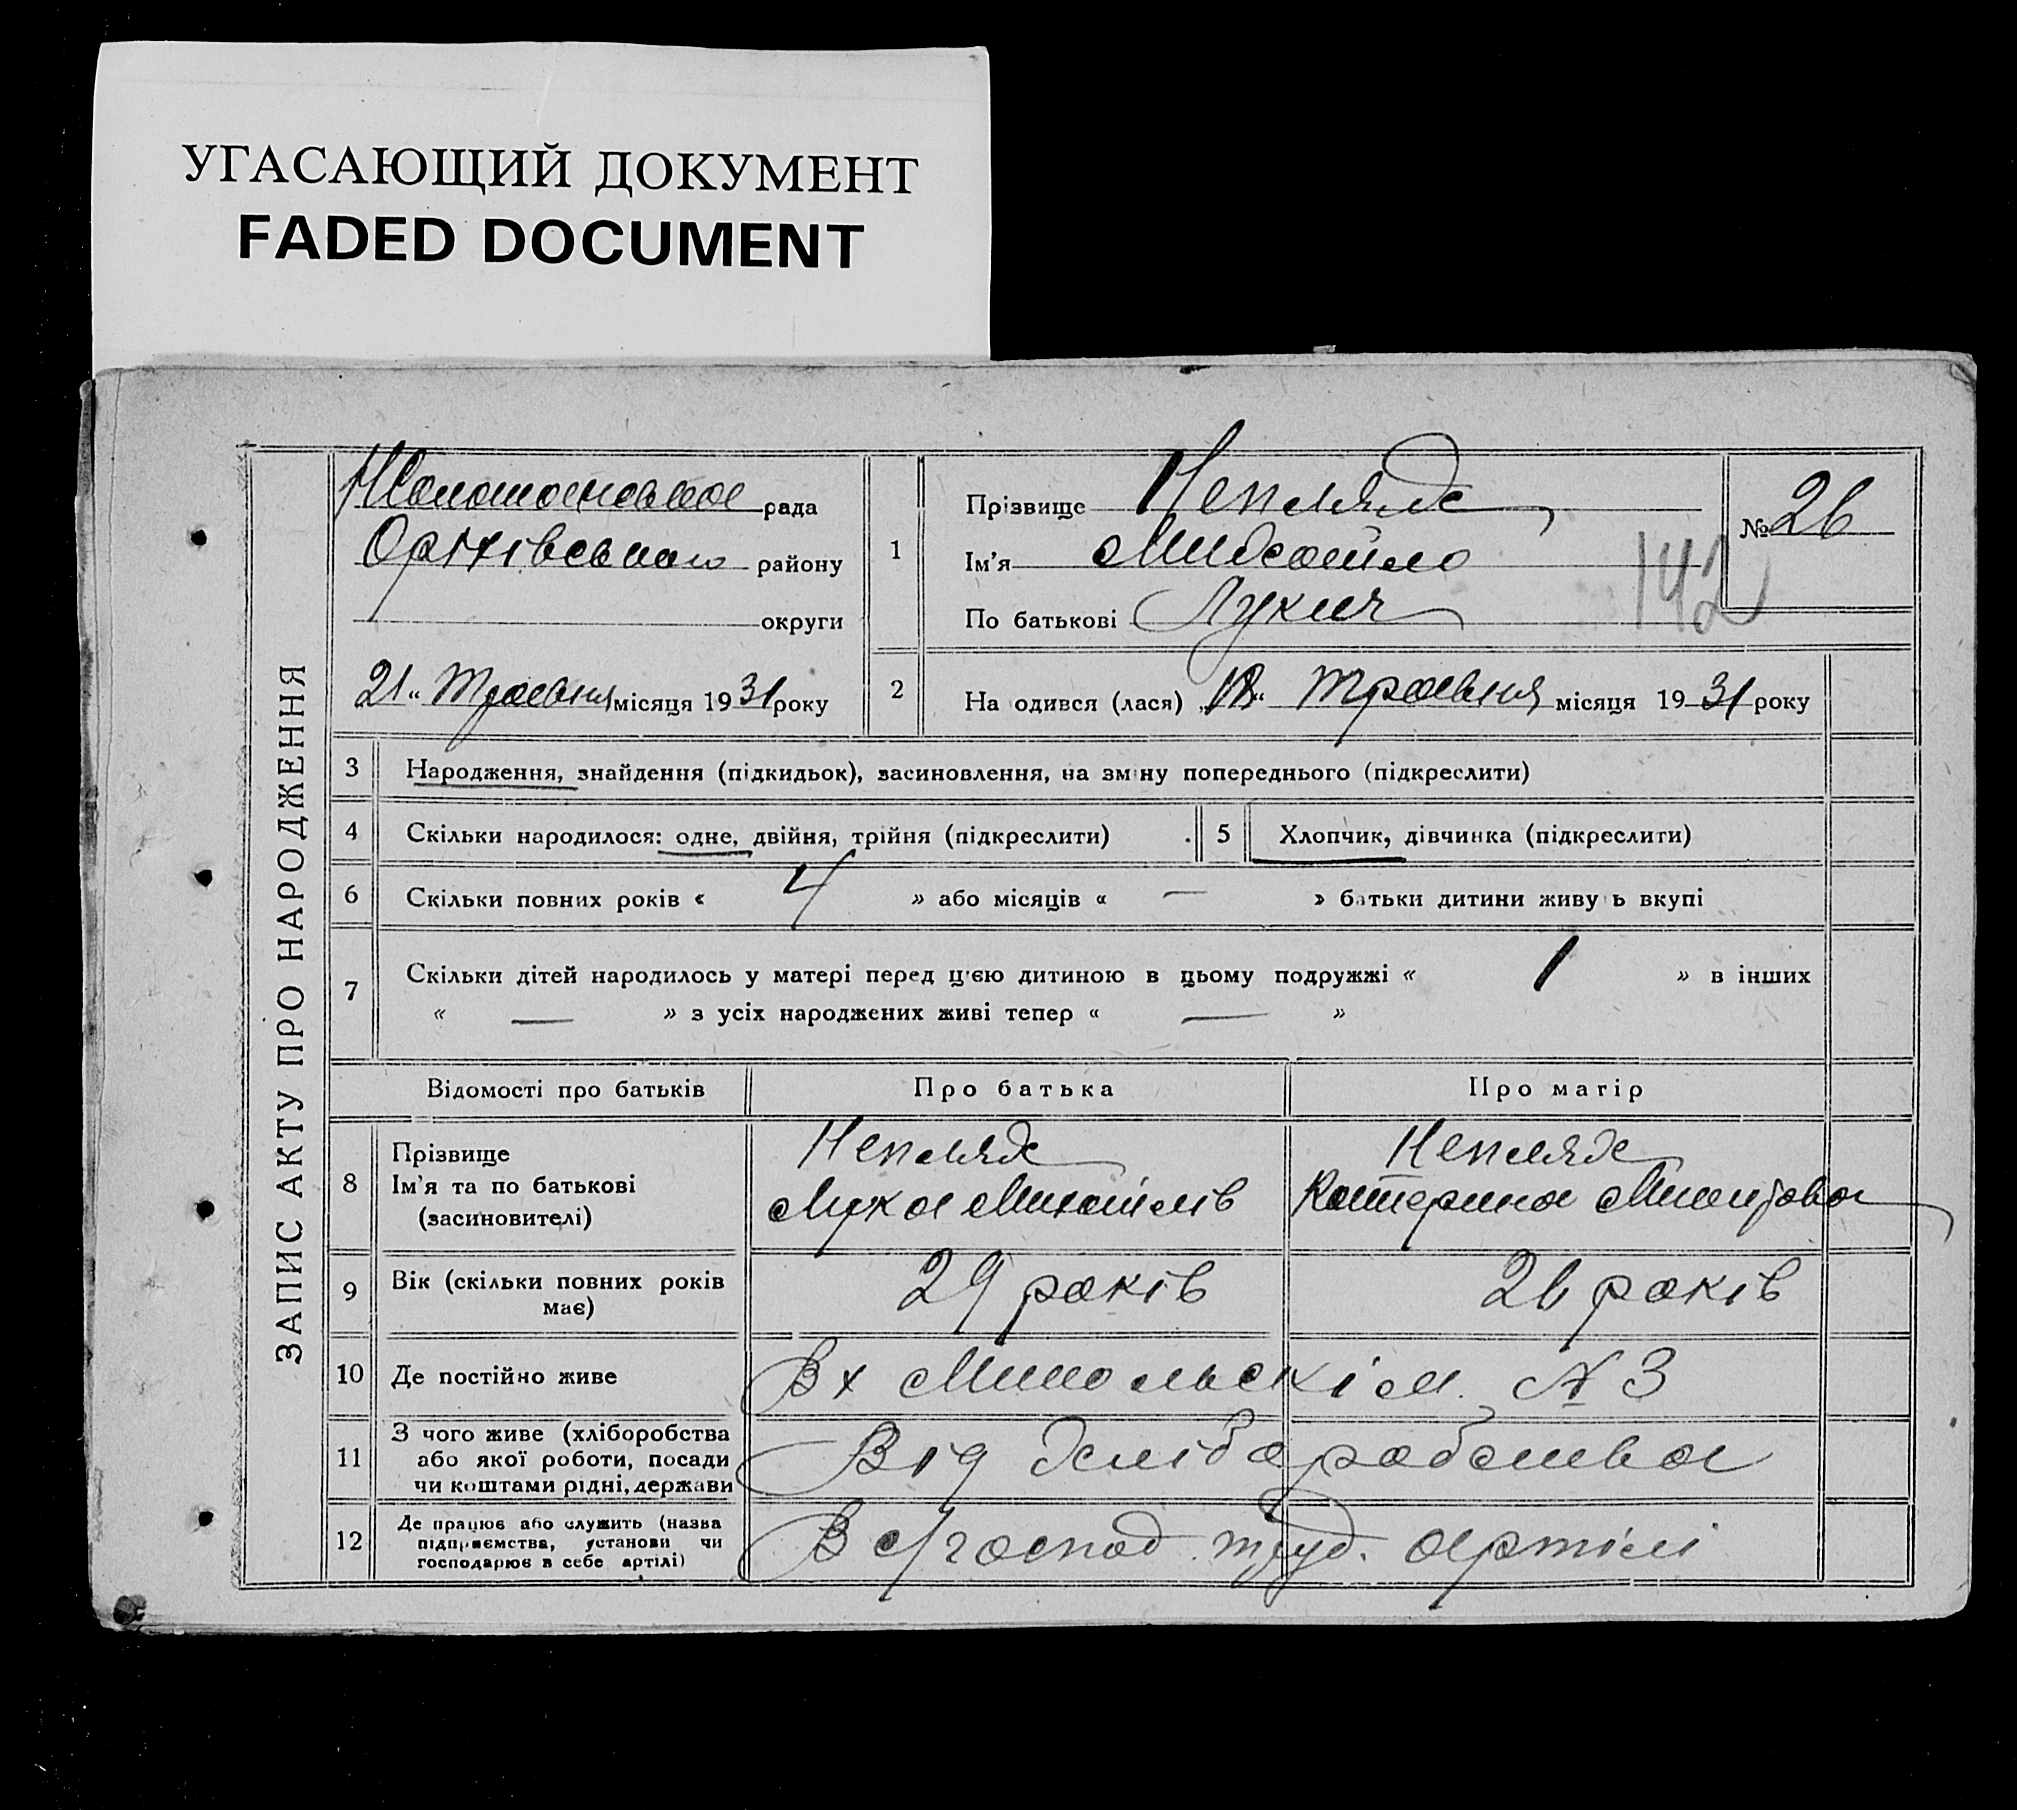 УГАСАЮЩИЙ ДОКУМЕНТ
FADED DOCUMENT
ЗАПИС АКТУ ПРО НАРОДЖЕННЯ
рада
Оріхівського району
округи
21 " Травня місяця 1931 року
1
Прізвище
Ім'я Михайло
По батькові Лукич
№ 26
142
2
Народився (лася) „18" травня місяця 1931 року
3 Народження, знайдення (підкидьок), засиновлення, на зміну попереднього (підкреслити)
4 Скільки народилося: одне, двійня, трійня (підкреслити) . 5 Хлопчик, дівчинка (підкреслити)
6 Скільки повних років « 4 » або місяців « — » батьки дитини живуть вкупі
7 Скільки дітей народилось у матері перед цією дитиною в цьому подружжі « 1 » в інших
« — » з усіх народжених живі тепер « — »
Відомості про батьків Про батька Про матір
8 Прізвище
Ім'я та по батькові
(засиновителі)
Лука Михайлів
Катерина
9 Вік (скільки повних років
має)
29 років 26 років
10 Де постійно живе В х № 3
11 З чого живе (хліборобства
або якої роботи, посади
чи коштами рідні, держави
Від хліборобства
12 Де працює або служить (назва
підприємства, установи чи
господарює в себе артілі)
В с/господ. труд. артілі